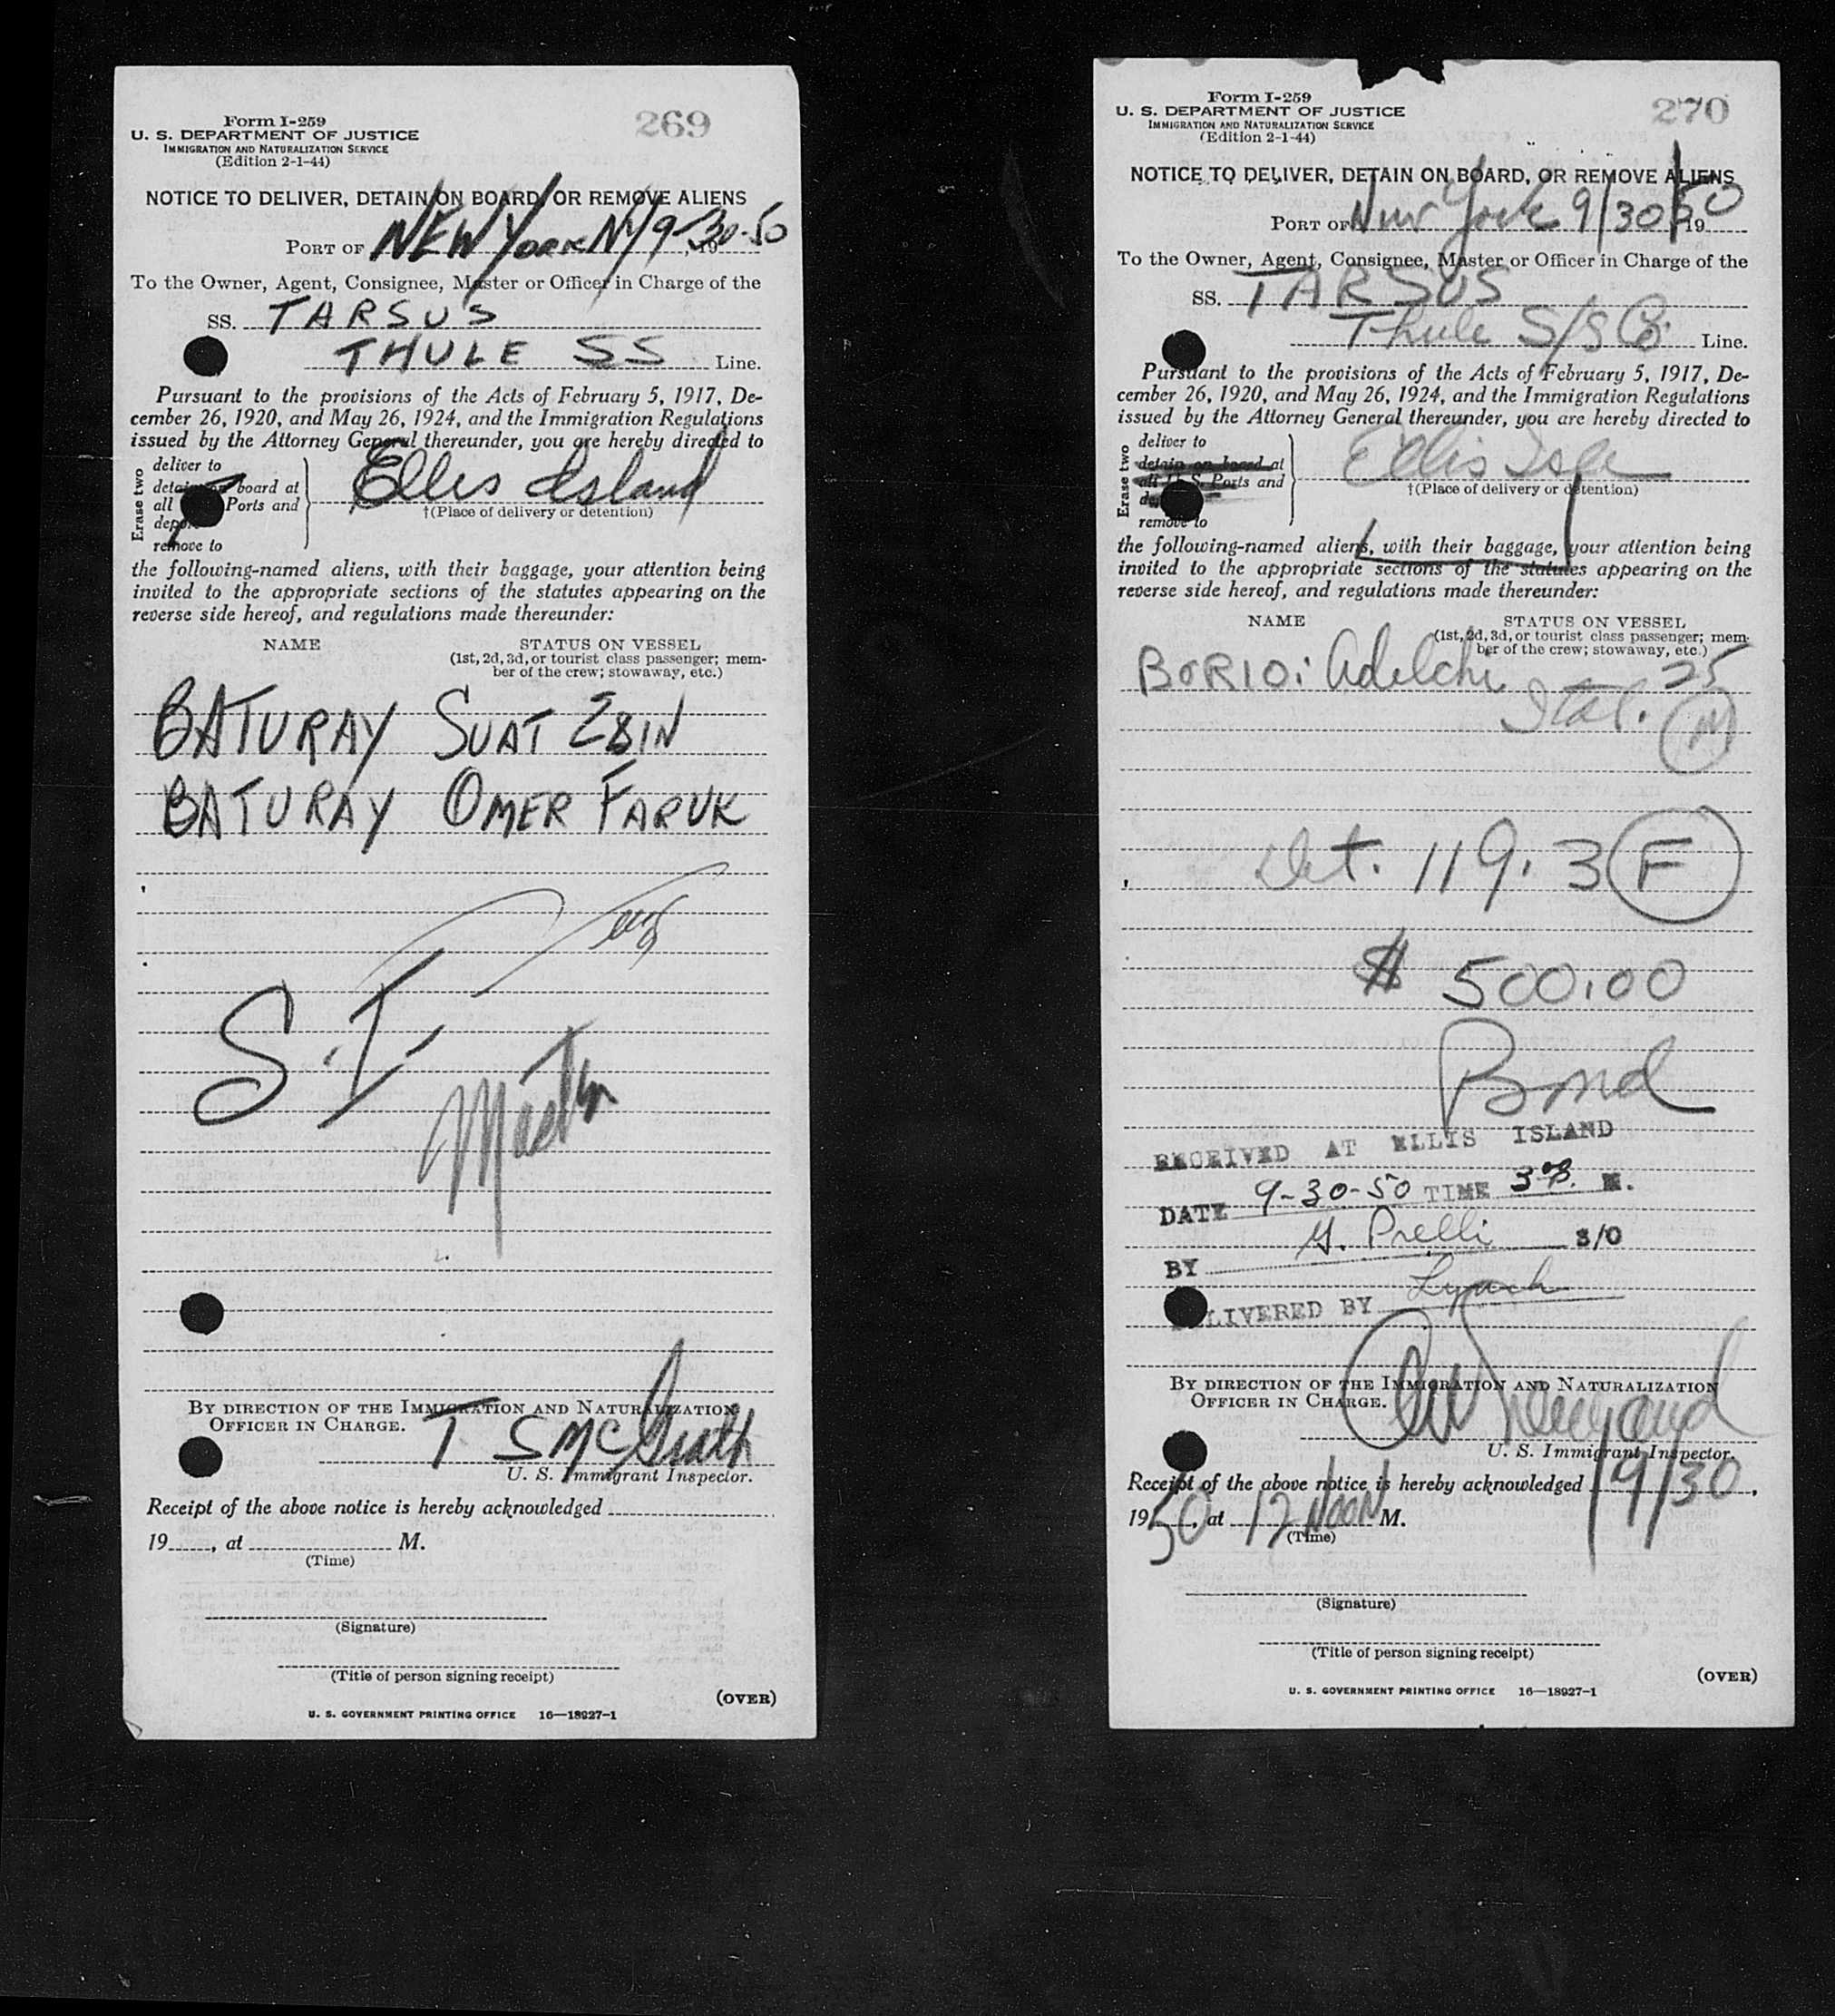 Form I-259
269
U. S. DEPARTMENT OF JUSTICE
IMMIGRATION AND NATURALIZATION SERVICE
(Edition 2-1-44)
NOTICE TO DELIVER, DETAIN ON BOARD, OR REMOVE ALIENS
PORT OF NEW YORK NY 9-30-50, 19
To the Owner, Agent, Consignee, Master or Officer in Charge of the
SS. TARSUS
THULE SS Line.
Pursuant to the provisions of the Acts of February 5, 1917, De-
cember 26, 1920, and May 26, 1924, and the Immigration Regulations
issued by the Attorney General thereunder, you are hereby directed to
Erase two
deliver to
board at
all Ports and
remove to
Ellis Island
†(Place of delivery or detention)
the following-named aliens, with their baggage, your attention being
invited to the appropriate sections of the statutes appearing on the
reverse side hereof, and regulations made thereunder:
NAME STATUS ON VESSEL
(1st, 2d, 3d, or tourist class passenger; mem-
ber of the crew; stowaway, etc.)
BATURAY SUAT
BATURAY OMER FARUK
S.I.
BY DIRECTION OF THE IMMIGRATION AND NATURALIZATION
OFFICER IN CHARGE.
T S McGrath
U. S. Immigrant Inspector.
Receipt of the above notice is hereby acknowledged
19, at M.
(Time)
(Signature)
(Title of person signing receipt)
(OVER)
U. S. GOVERNMENT PRINTING OFFICE 16—18927-1
Form I-259
270
U. S. DEPARTMENT OF JUSTICE
IMMIGRATION AND NATURALIZATION SERVICE
(Edition 2-1-44)
NOTICE TO DELIVER, DETAIN ON BOARD, OR REMOVE ALIENS
PORT OF New York 9/30/50 19
To the Owner, Agent, Consignee, Master or Officer in Charge of the
SS. TARSUS
Thule S/S Co. Line.
Pursuant to the provisions of the Acts of February 5, 1917, De-
cember 26, 1920, and May 26, 1924, and the Immigration Regulations
issued by the Attorney General thereunder, you are hereby directed to
Erase two
deliver to
detain on board at
all U. S. Ports and
remove to
Ellis Isle
†(Place of delivery or detention)
the following-named aliens, with their baggage, your attention being
invited to the appropriate sections of the statutes appearing on the
reverse side hereof, and regulations made thereunder:
NAME STATUS ON VESSEL
(1st, 2d, 3d, or tourist class passenger; mem-
ber of the crew; stowaway, etc.)
BORIO: Adelchi 25
Ital. M
Det. 119.3 F
$ 500.00
Bond
RECEIVED AT ELLIS ISLAND
DATE 9-30-50 TIME M.
BY S/O
LIVERED BY Lynch
BY DIRECTION OF THE IMMIGRATION AND NATURALIZATION
OFFICER IN CHARGE.
U. S. Immigrant Inspector.
Receipt of the above notice is hereby acknowledged 9/30,
1950, at 12 NOON M.
(Time)
(Signature)
(Title of person signing receipt)
(OVER)
U. S. GOVERNMENT PRINTING OFFICE 16—18927-1